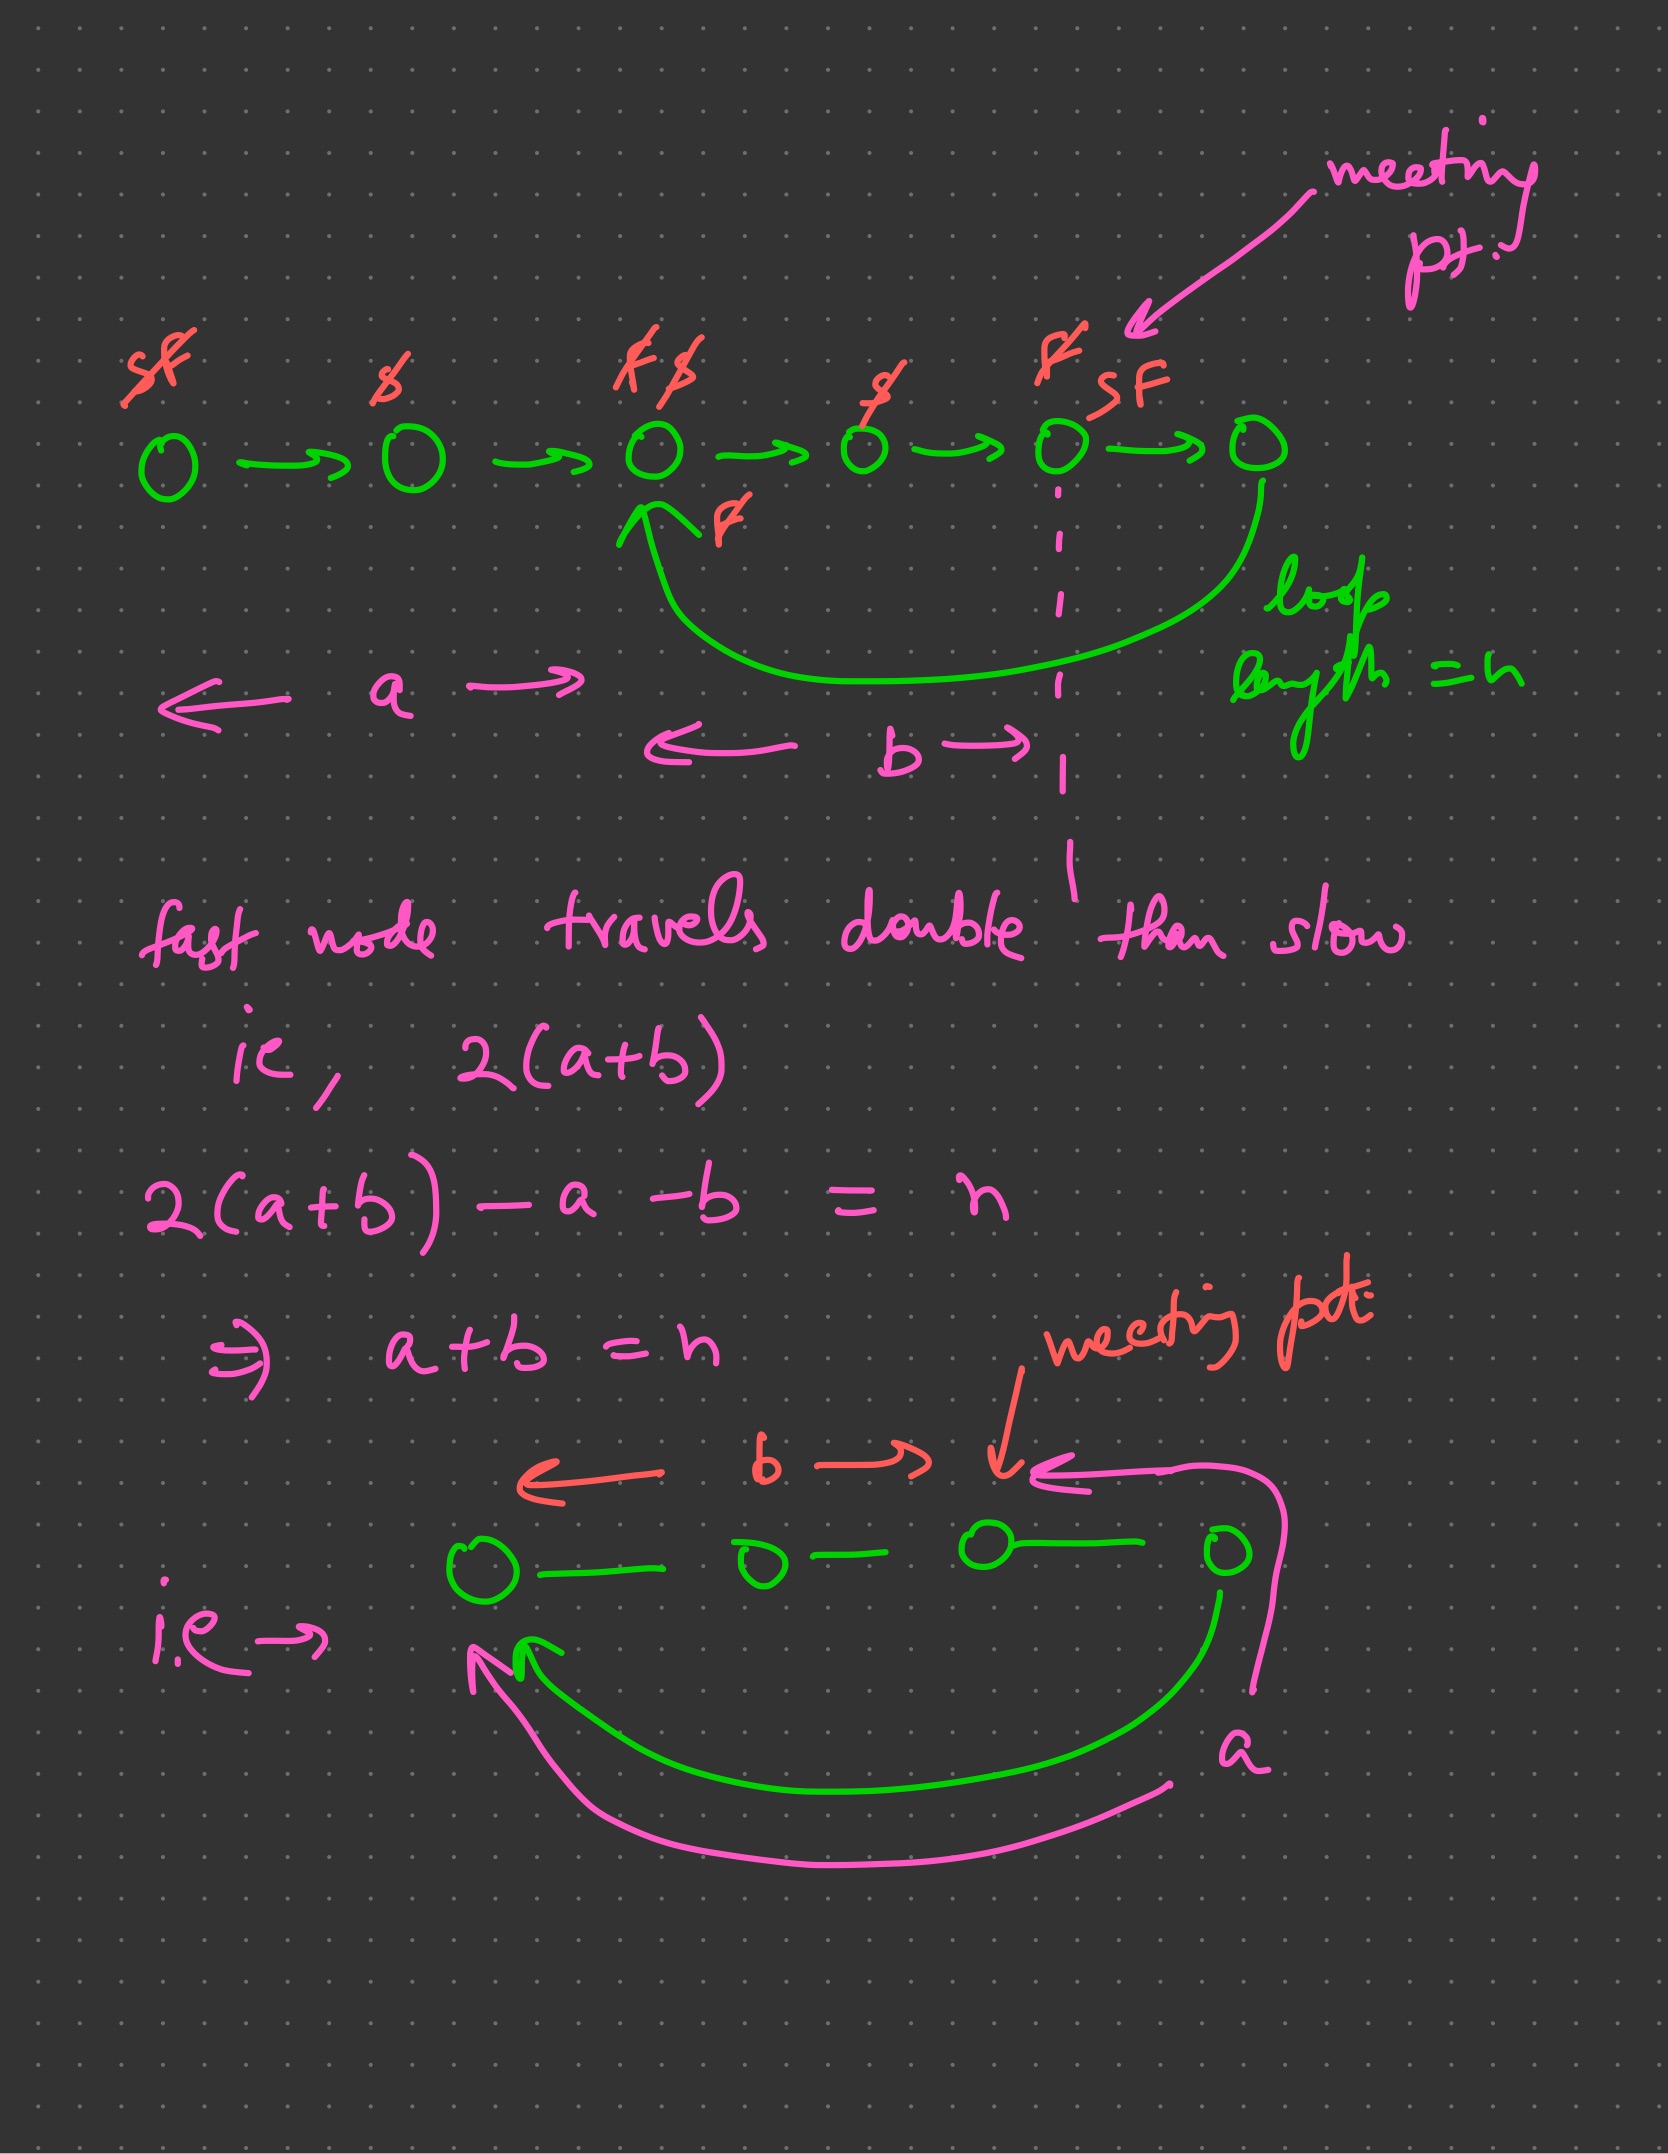 meeting
pt.
SF S F S S F
S F
F
loop
length = n
a
b
fast node travels double than slow
ie, 2(a+b)
2(a+b) - a - b = n
⇒ a + b = n
meeting pt.
b
i.e →
a